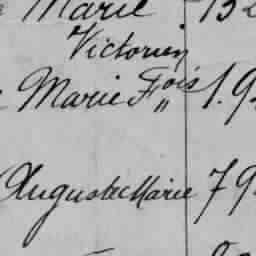 Marie 132
Victorien
Marie Fois 1.9
Auguste Marie 79